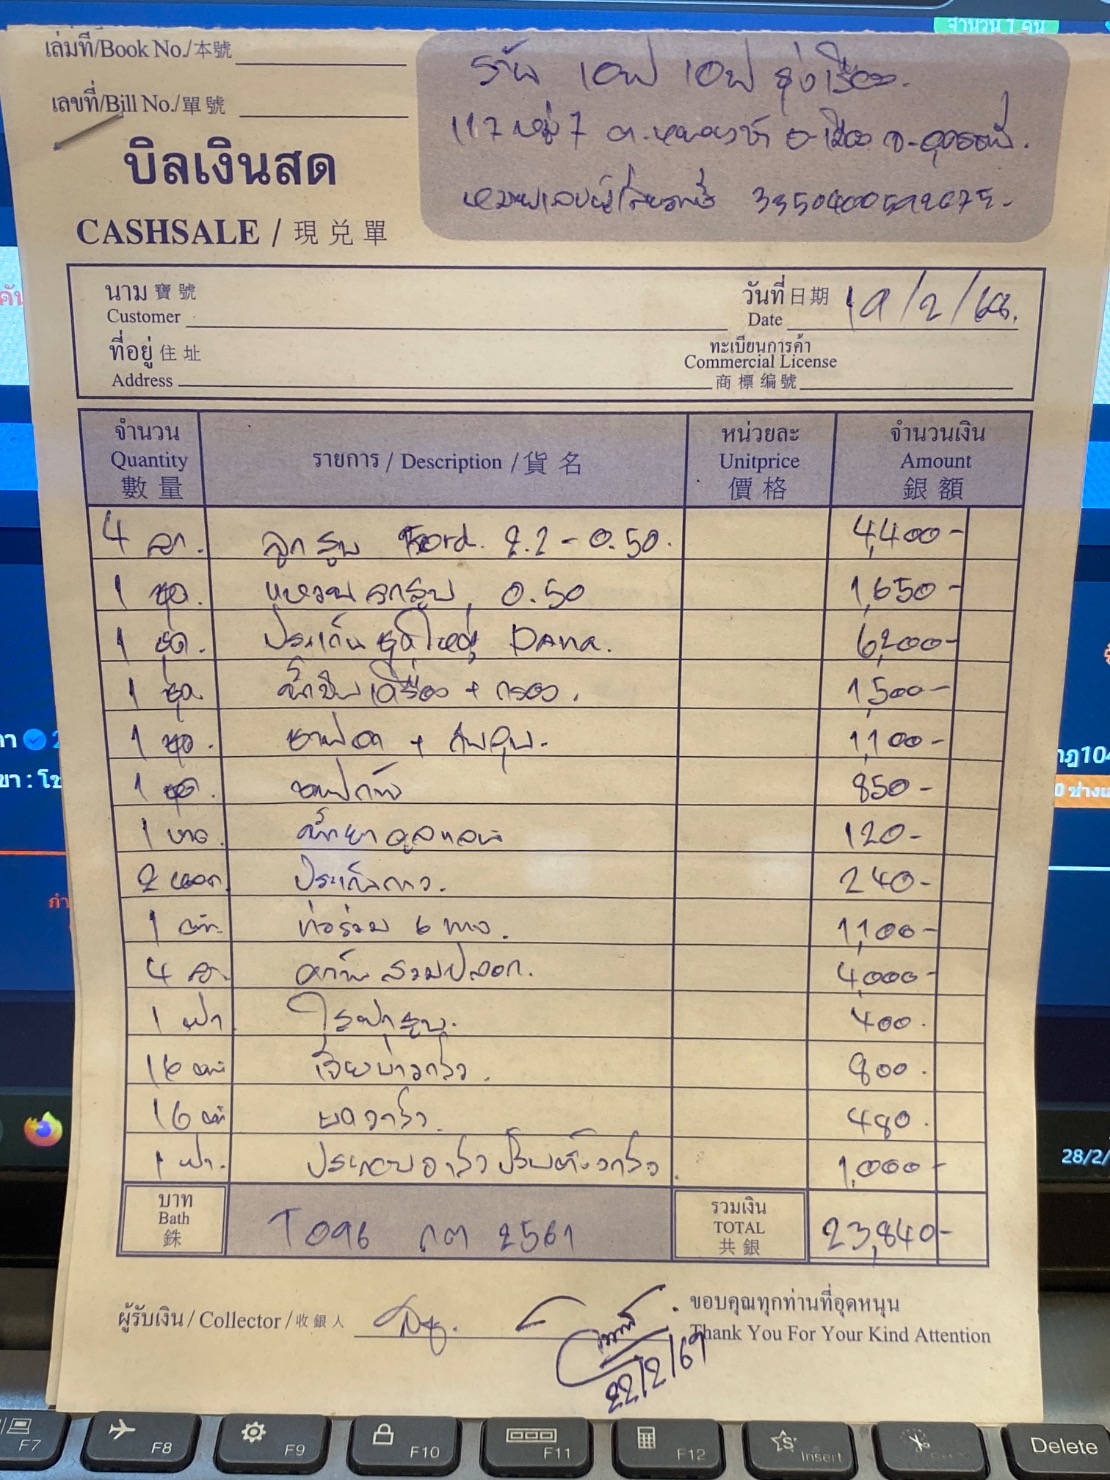 จำนวน 1 คน
เล่มที่/Book No./本號
ร้าน เอฟ เอฟ รุ่งเรือง.
เลขที่/Bill No./單號
117 หมู่ 7 ต. อ.เมือง จ.อุดรธานี.
บิลเงินสด
หมายเลขผู้เสียภาษี
CASHSALE / 現兑單
นาม 寶號
Customer
วันที่ 日期
Date
ที่อยู่ 住址
Address
ทะเบียนการค้า
Commercial License
商標编號
จำนวน
Quantity
數量
รายการ / Description / 貨名
หน่วยละ
Unitprice
價格
จำนวนเงิน
Amount
銀額
4 ลูก. ลูกสูบ Ford. 2.2 - 0.50. 4,400-
1 ชุด. แหวนลูกสูบ, 0.50 1,650-
1 ชุด. ประเก็นชุดใหญ่ DANA. 6,200-
1 ชุด น้ำมันเครื่อง + กรอง. 1,500-
1 ชุด. ชาฟอก + 1,100-
1 ชุด. ชาฟก้าน 850-
1 120-
2 หลอด. ประเก็นกาว. 240-
1 ตัว. ท่อร่วม 6 ทาง. 1,100-
4 สวมปลอก. 4,000-
1 ฝา 400.
16 ตัว เจียบ่าวาล์ว. 800.
16 ตัว บดวาล์ว. 480.
1 ฝา. ประกอบวาล์ว ปรับตั้งวาล์ว. 1,000-
บาท
Bath
銖
T096 กต 2561
รวมเงิน
TOTAL
共銀
23,840-
ผู้รับเงิน / Collector / 收銀人
ขอบคุณทุกท่านที่อุดหนุน
Thank You For Your Kind Attention
22/2/67
28/2/
F7
F8
F9
F10
F11
F12
Insert
Delete